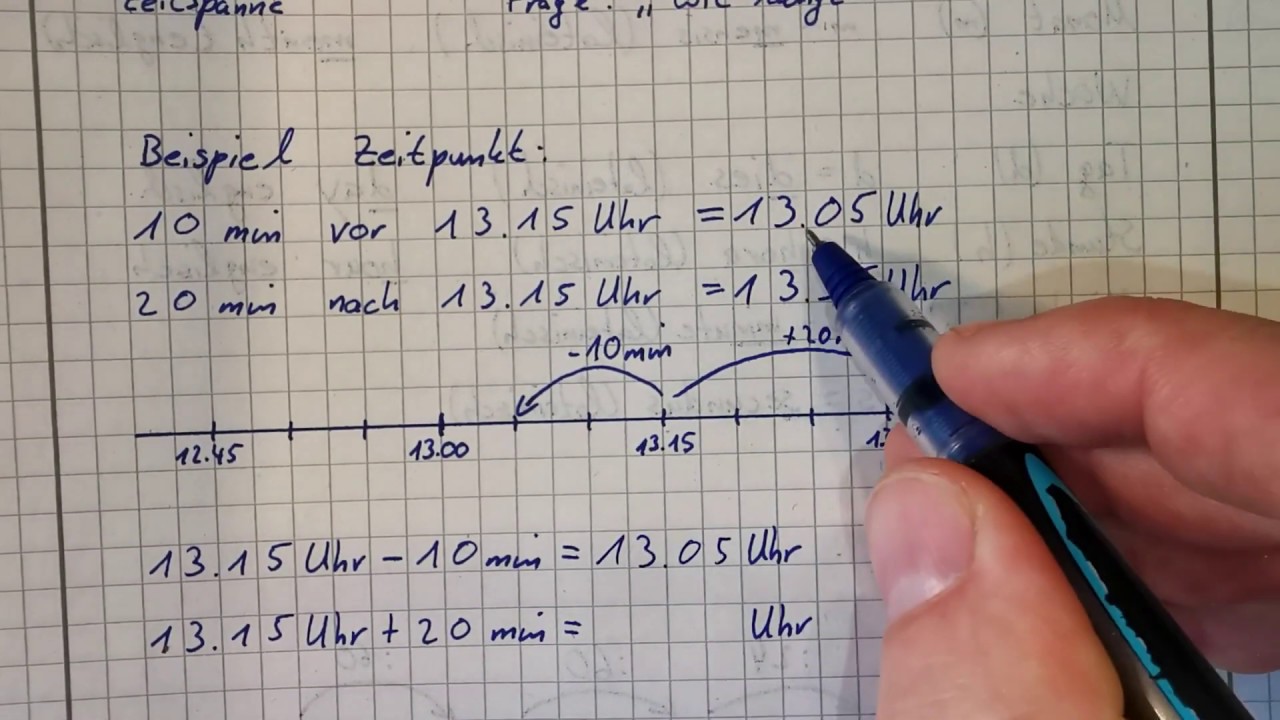 Zeitspanne Frage: „Wie lange
Beispiel Zeitpunkt:
10 min vor 13.15 Uhr = 13.05 Uhr
20 min nach 13.15 Uhr = 13. Uhr
-10min +20
12.45 13.00 13.15
13.15 Uhr - 10 min = 13.05 Uhr
13.15 Uhr + 20 min = Uhr